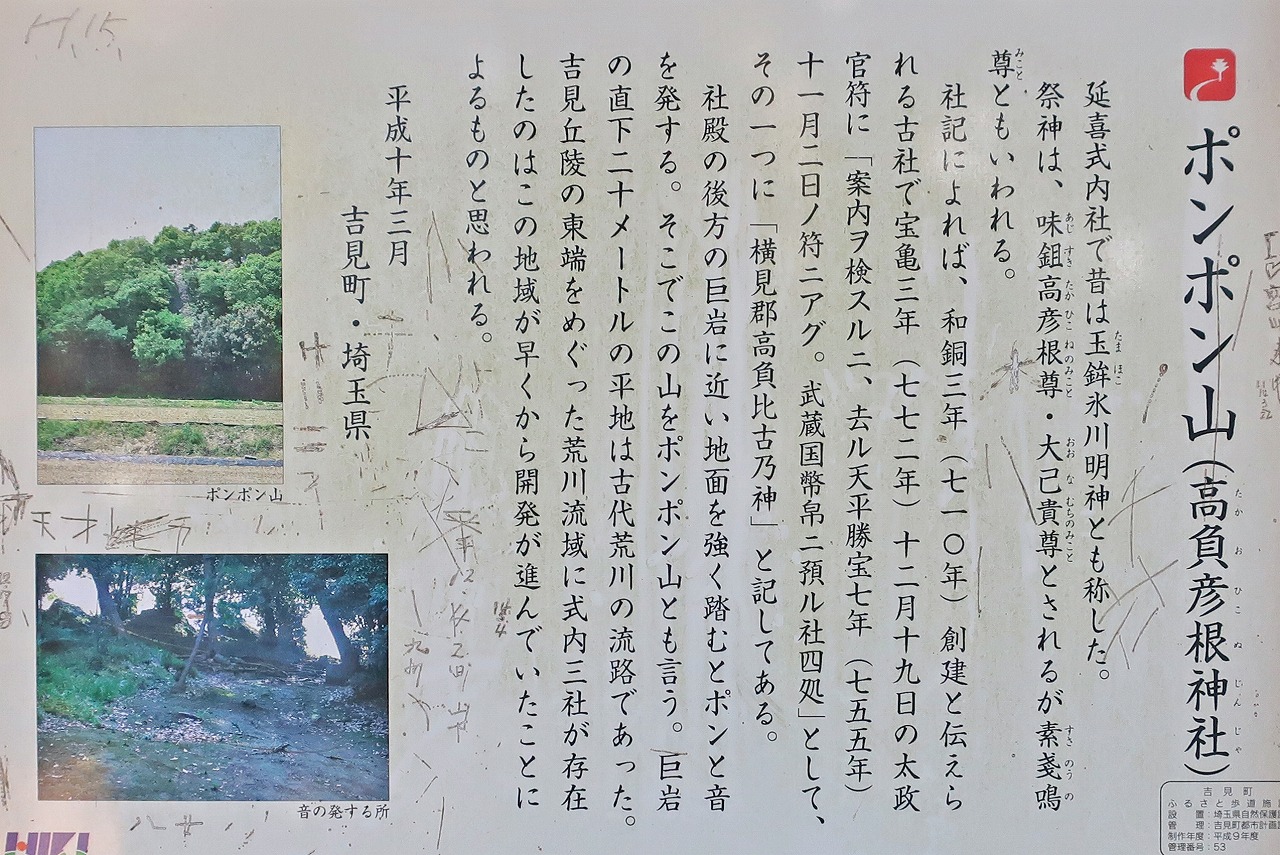 ポンポン山(高負彦根神社)
たか お ひこ ね じん じゃ
延喜式内社で昔は玉鉾氷川明神とも称した。
たま ほこ
祭神は、味鉏高彦根尊・大己貴尊とされるが素戔嗚
あじ すき たか ひこ ねのみこと おお な むちのみこと すさ のう の
尊ともいわれる。
みこと
社記によれば、和銅三年(七一〇年)創建と伝えら
れる古社で宝亀三年(七七二年)十二月十九日の太政
官符に「案内ヲ検スルニ、去ル天平勝宝七年(七五五年)
十一月二日ノ符ニアグ。武蔵国幣帛ニ預ル社四処」として、
その一つに「横見郡高負比古乃神」と記してある。
社殿の後方の巨岩に近い地面を強く踏むとポンと音
を発する。そこでこの山をポンポン山とも言う。巨岩
の直下二十メートルの平地は古代荒川の流路であった。
吉見丘陵の東端をめぐった荒川流域に式内三社が存在
したのはこの地域が早くから開発が進んでいたことに
よるものと思われる。
平成十年三月
吉見町・埼玉県
ポンポン山
音の発する所
吉見町
ふるさと歩道施
設 置:埼玉県自然保護
管 理:吉見町都市計画
制作年度:平成9年度
管理番号:53
H.15.
天才
HIKI